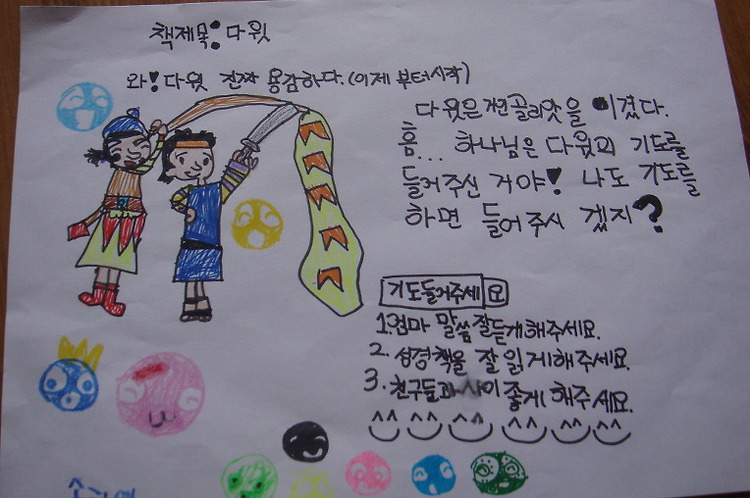 책제목: 다윗
와! 다윗 진짜 용감하다. (이제 부터시작)
다윗은 번 골리앗을 이겼다.
흠... 하나님은 다윗의 기도를
들어주신 거야! 나도 기도를
하면 들어주시 겠지?
기도들어주세요
1. 엄마 말씀 잘듣게 해주세요.
2. 성경책을 잘 읽게해주세요.
3. 친구들과 사이 좋게 해주세요.